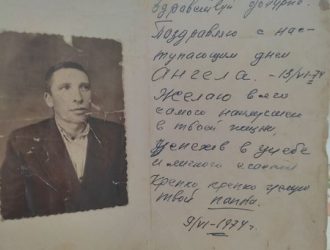 Здравствуй
Поздравляю с нас-
тупающим днем
Ангела. - 13/VI-74
Желаю всего
самого наилучшего
в твоей жизни,
успехов в учебе
и личного
Крепко крепко целую
твой папка.
9/VI-1974г.